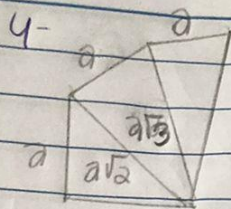 4-
a
a
a√3
a
a√2